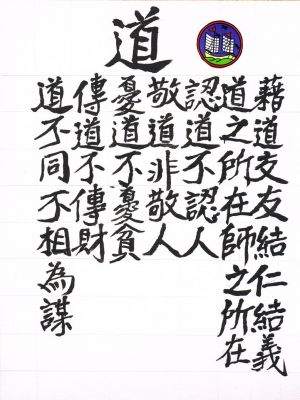 道
藉道交友結仁結義
道之所在師之所在
認道不認人
敬道非敬人
憂道不憂貧
傳道不傳財
道不同不相為謀